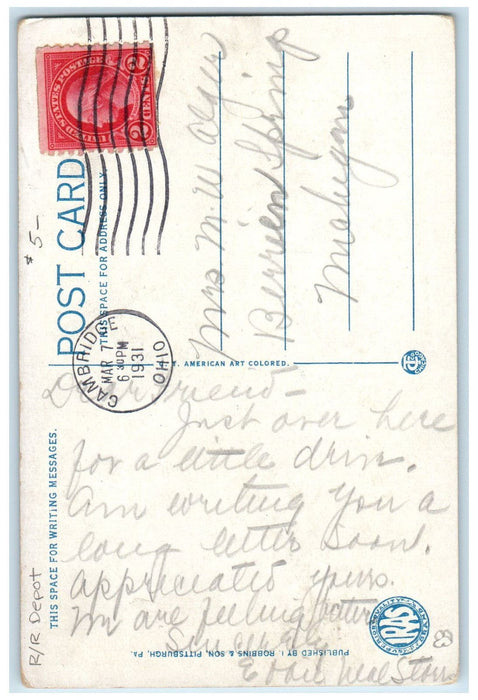 UNITED STATES POSTAGE
2 CENTS 2
POST CARD
THIS SPACE FOR ADDRESS ONLY.
CAMBRIDGE
MAR 7
6 30 PM
1931
OHIO
Mrs M. W.
Berrien Spring
Michigan
C.T. AMERICAN ART COLORED.
THIS SPACE FOR WRITING MESSAGES.
Dear friend -
Just over here
for a little drive.
Am writing you a
long letter soon.
Appreciated yours.
We are feeling better
Sincerely
PUBLISHED BY I. ROBBINS & SON, PITTSBURGH, PA.
IRAS
R/R Depot
$5-